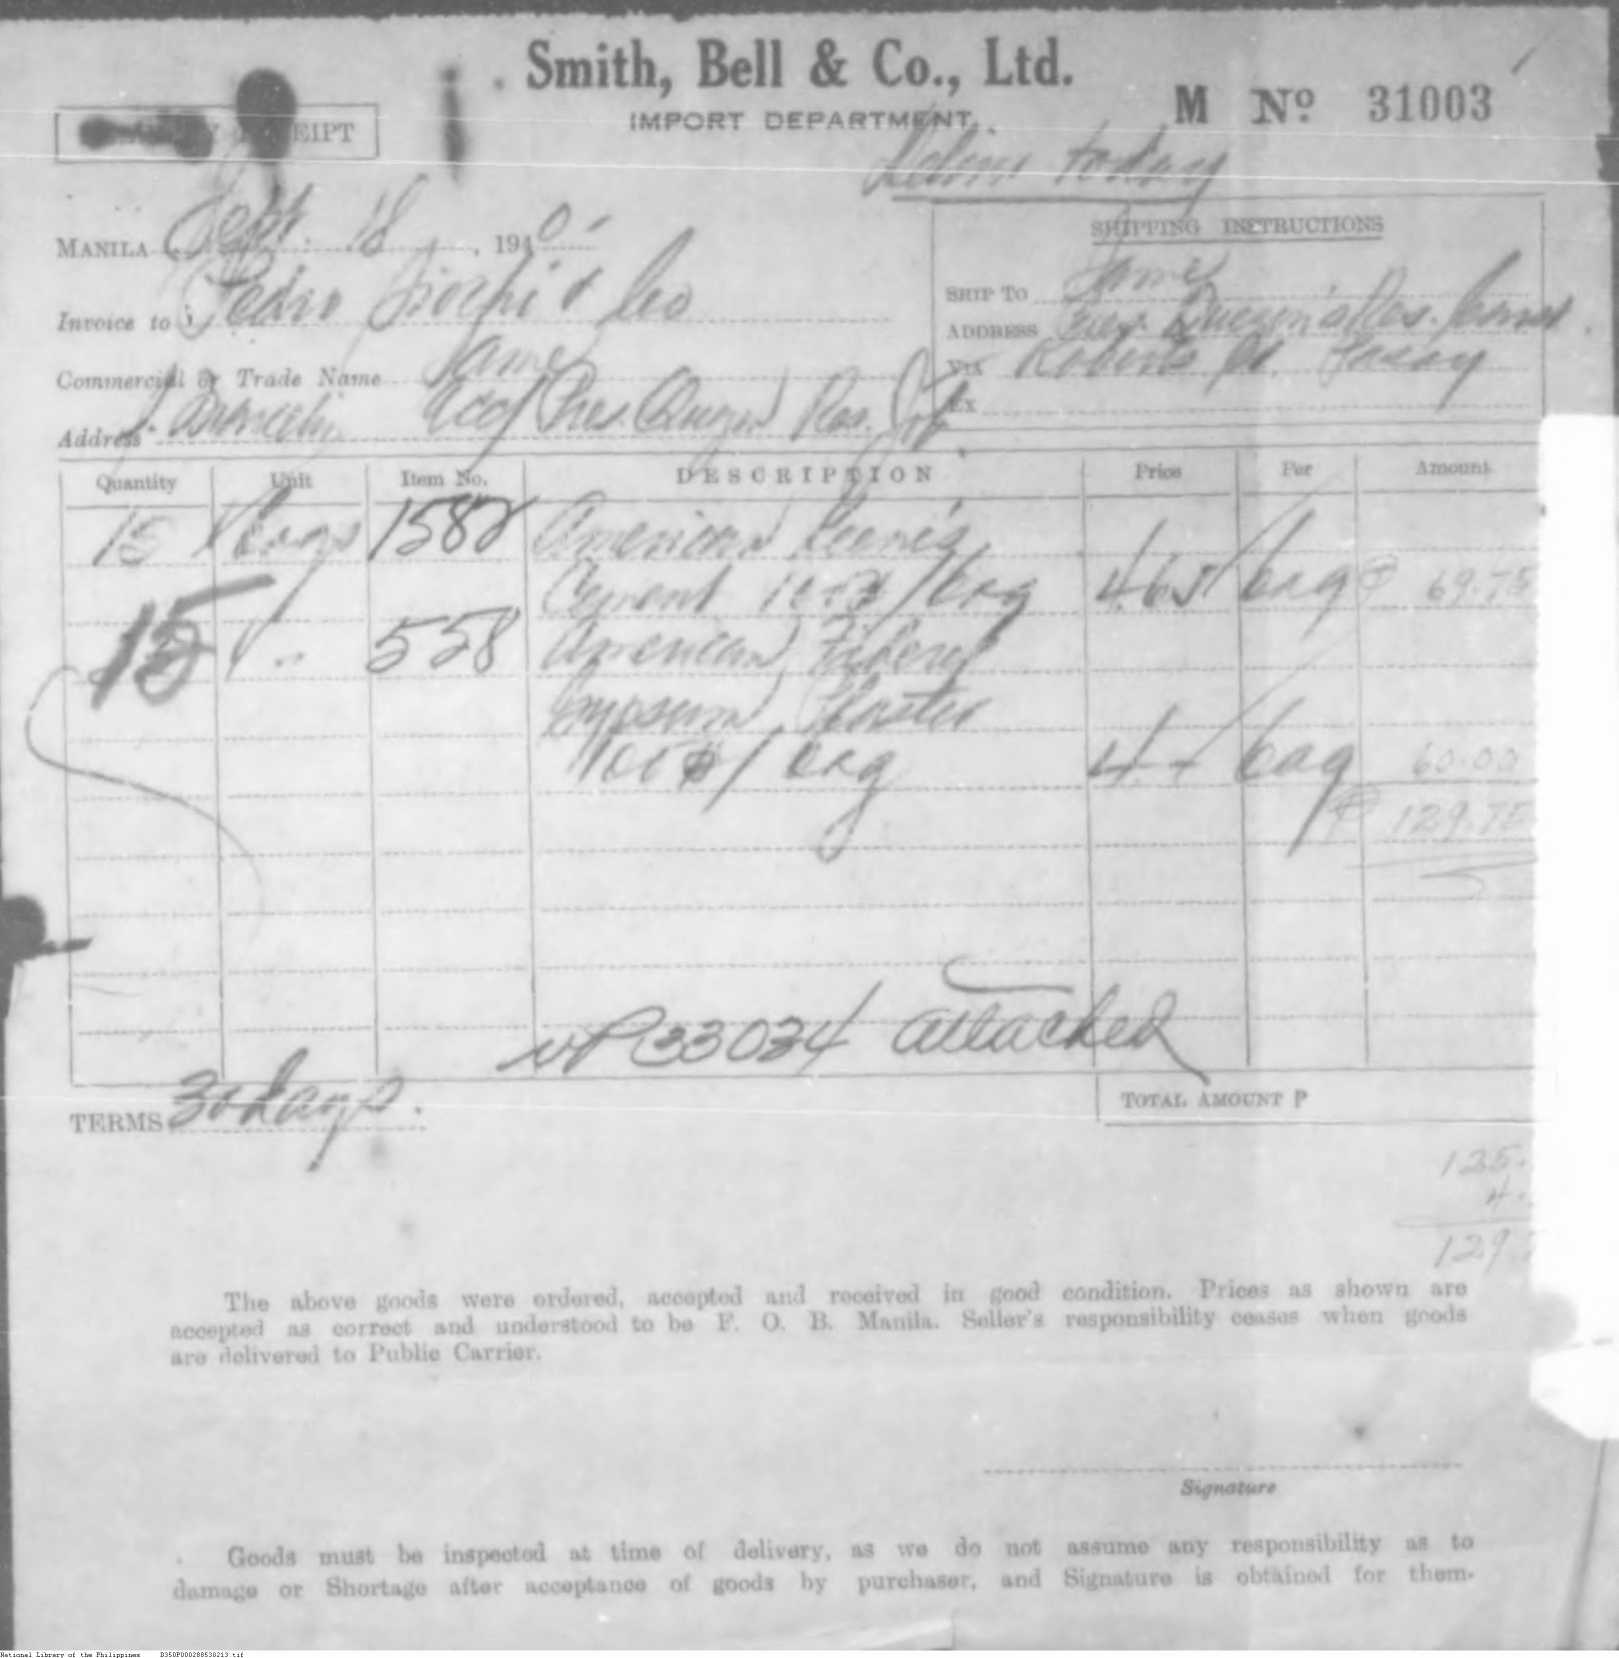 Smith, Bell & Co., Ltd.
IMPORT DEPARTMENT.
M No. 31003
RECEIPT
today
MANILA Sept. 18, 1940
SHIPPING INSTRUCTIONS
Invoice to Pedro & Co
SHIP TO Same
ADDRESS Pres. Quezon's Res. Corner
Commercial or Trade Name Same
VIA Roberts St. Pasay
Address a/c Pres. Quezon Res. Job
EX
Quantity Unit Item No. DESCRIPTION Price Per Amount
15 bags 1582 American Keene's
Cement 100# / bag 4.65 / bag ₱ 69.75
15 " 558 American Fibered
Gypsum Plaster
100# / bag 4.- / bag 60.00
₱ 129.75
33034 attached
TERMS 30 days.
TOTAL AMOUNT ₱
135.
4.
129.7
The above goods were ordered, accepted and received in good condition. Prices as shown are
accepted as correct and understood to be F. O. B. Manila. Seller's responsibility ceases when goods
are delivered to Public Carrier.
Signature
Goods must be inspected at time of delivery, as we do not assume any responsibility as to
damage or Shortage after acceptance of goods by purchaser, and Signature is obtained for them.
National Library of the Philippines B350P000288538213.tif